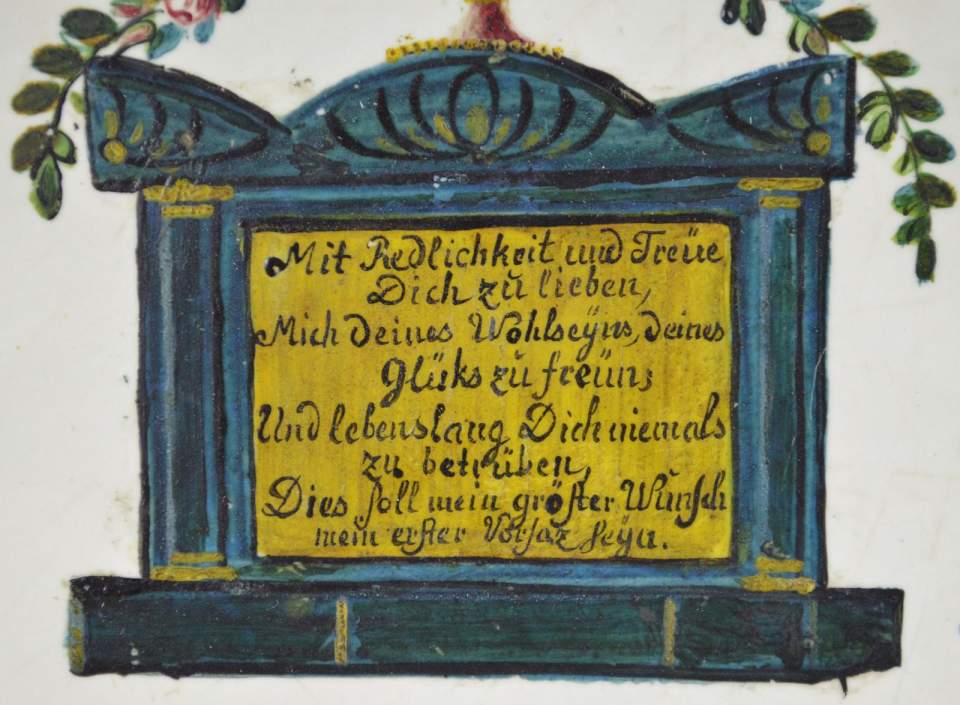 Mit Redlichkeit und Treüe
Dich zŭ lieben,
Mich deines Wohlseÿns, deines
Glüks zŭ freüun;
Und lebenslang Dich niemals
zu betrüben,
Dies soll mein gröster Wŭnsch
mein erster Vorsaz seyn.